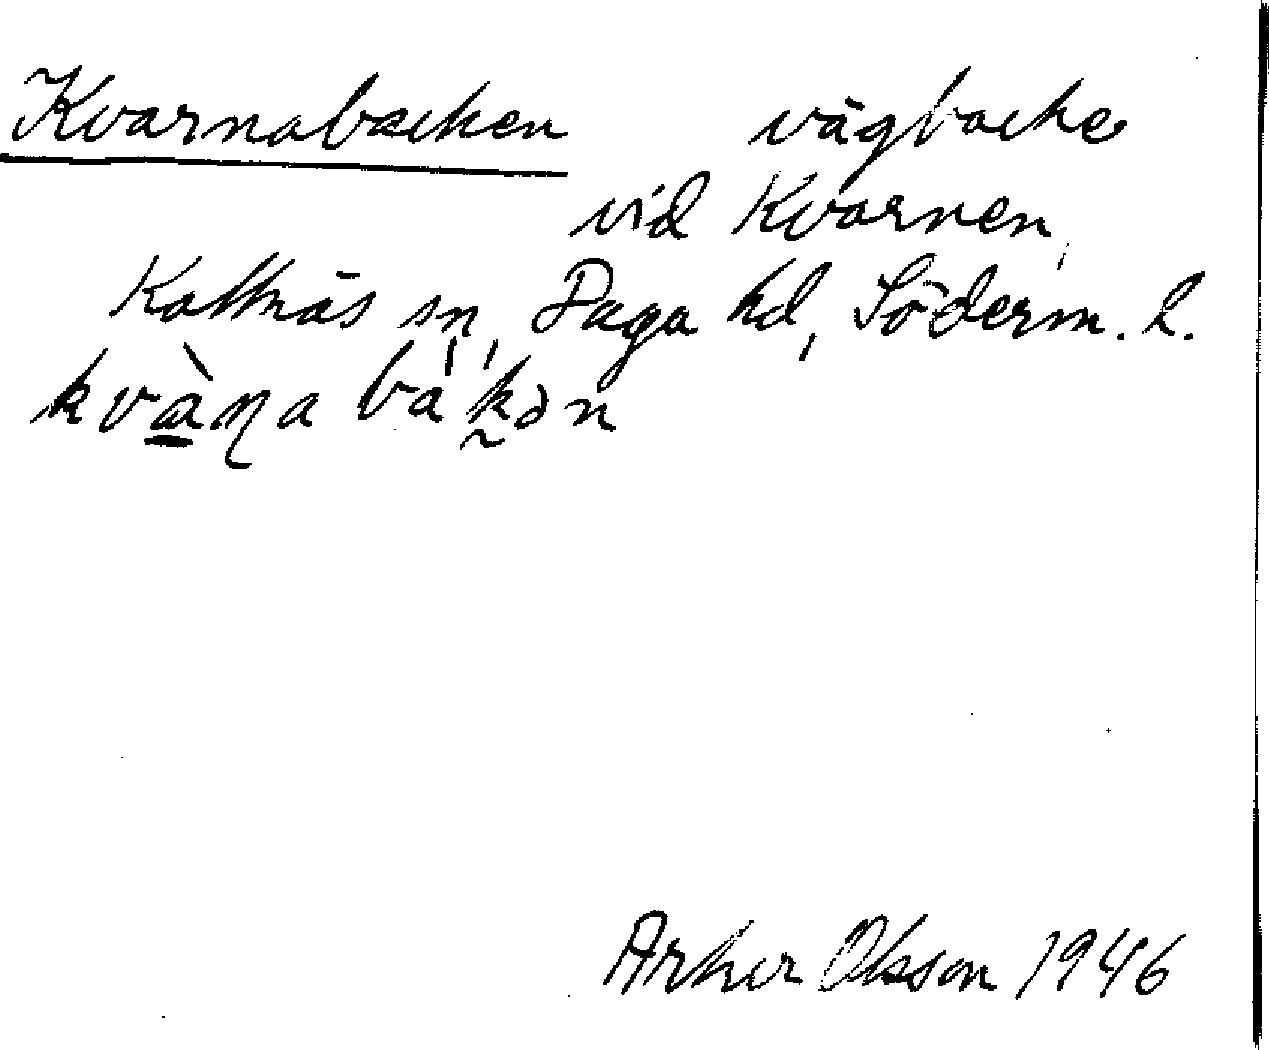 Kvarnabacken vägbacke
vid Kvarnen,
Kattnäs sn, Daga hd, Söderm. l.
kvàɳa bà'kən
Arthur Olsson 1946